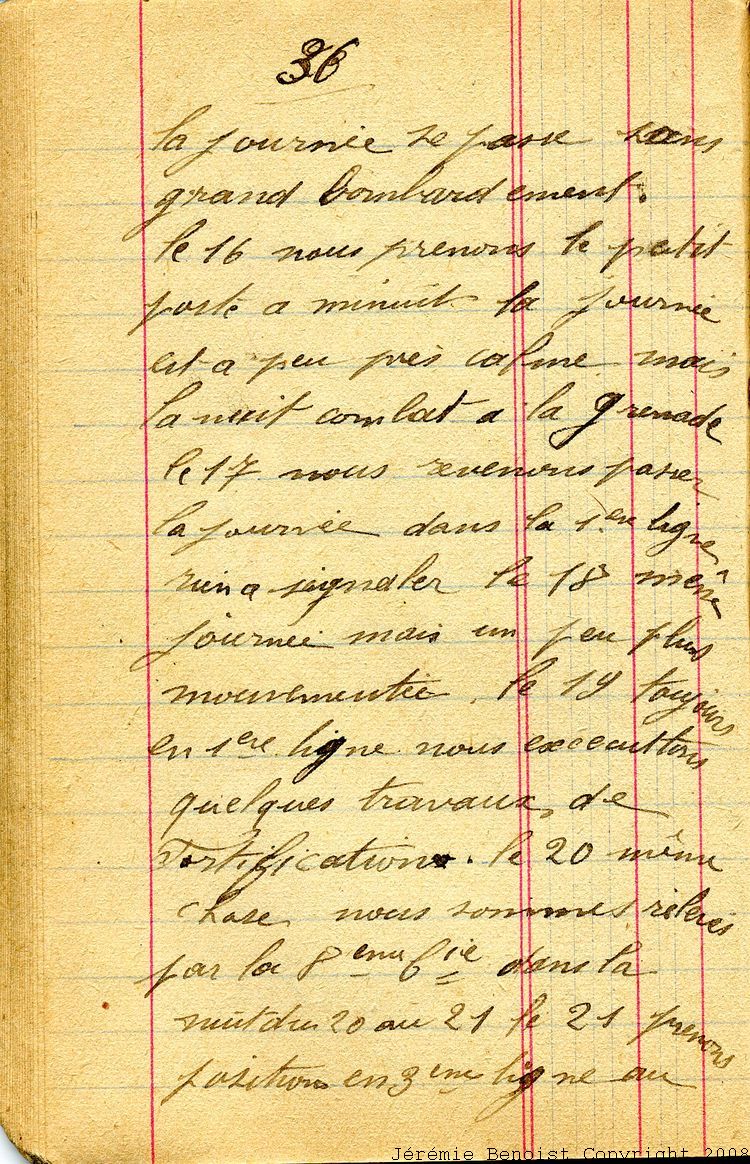 36
la journée se passe sans
grand bombardement.
le 16 nous prenons le petit
poste a minuit la journée
est a peu près calme mais
la nuit combat a la grenade
le 17 nous revenons passer
la journée dans la 1ere ligne
rien a signaler le 18 même
journée mais un peu plus
mouvementée, le 19 toujours
en 1ere ligne nous excecuttons
quelques travaux de
Fortification. le 20 même
chose nous sommes relevés
par la 8eme Cie dans la
nuit du 20 au 21 le 21 prenons
position en 3eme ligne au
Jérémie Benoist Copyright 2008